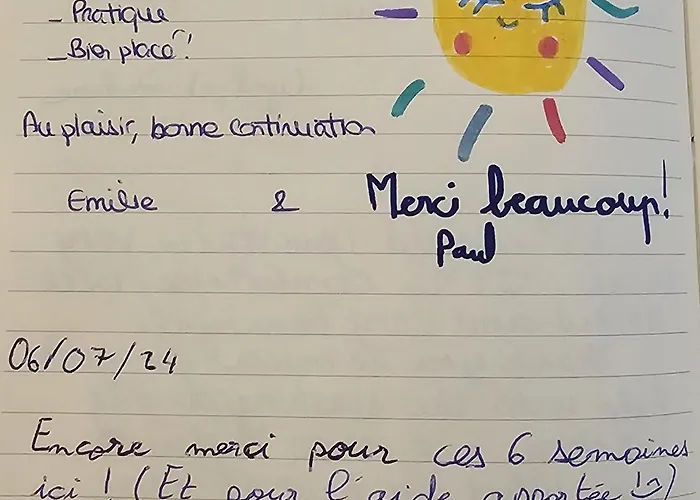 - Pratique
- Bien placé !
Au plaisir, bonne continuation
Emilie & Merci beaucoup!
Paul
06/07/24
Encore merci pour ces 6 semaines
ici ! (Et pour l'aide apportée !)